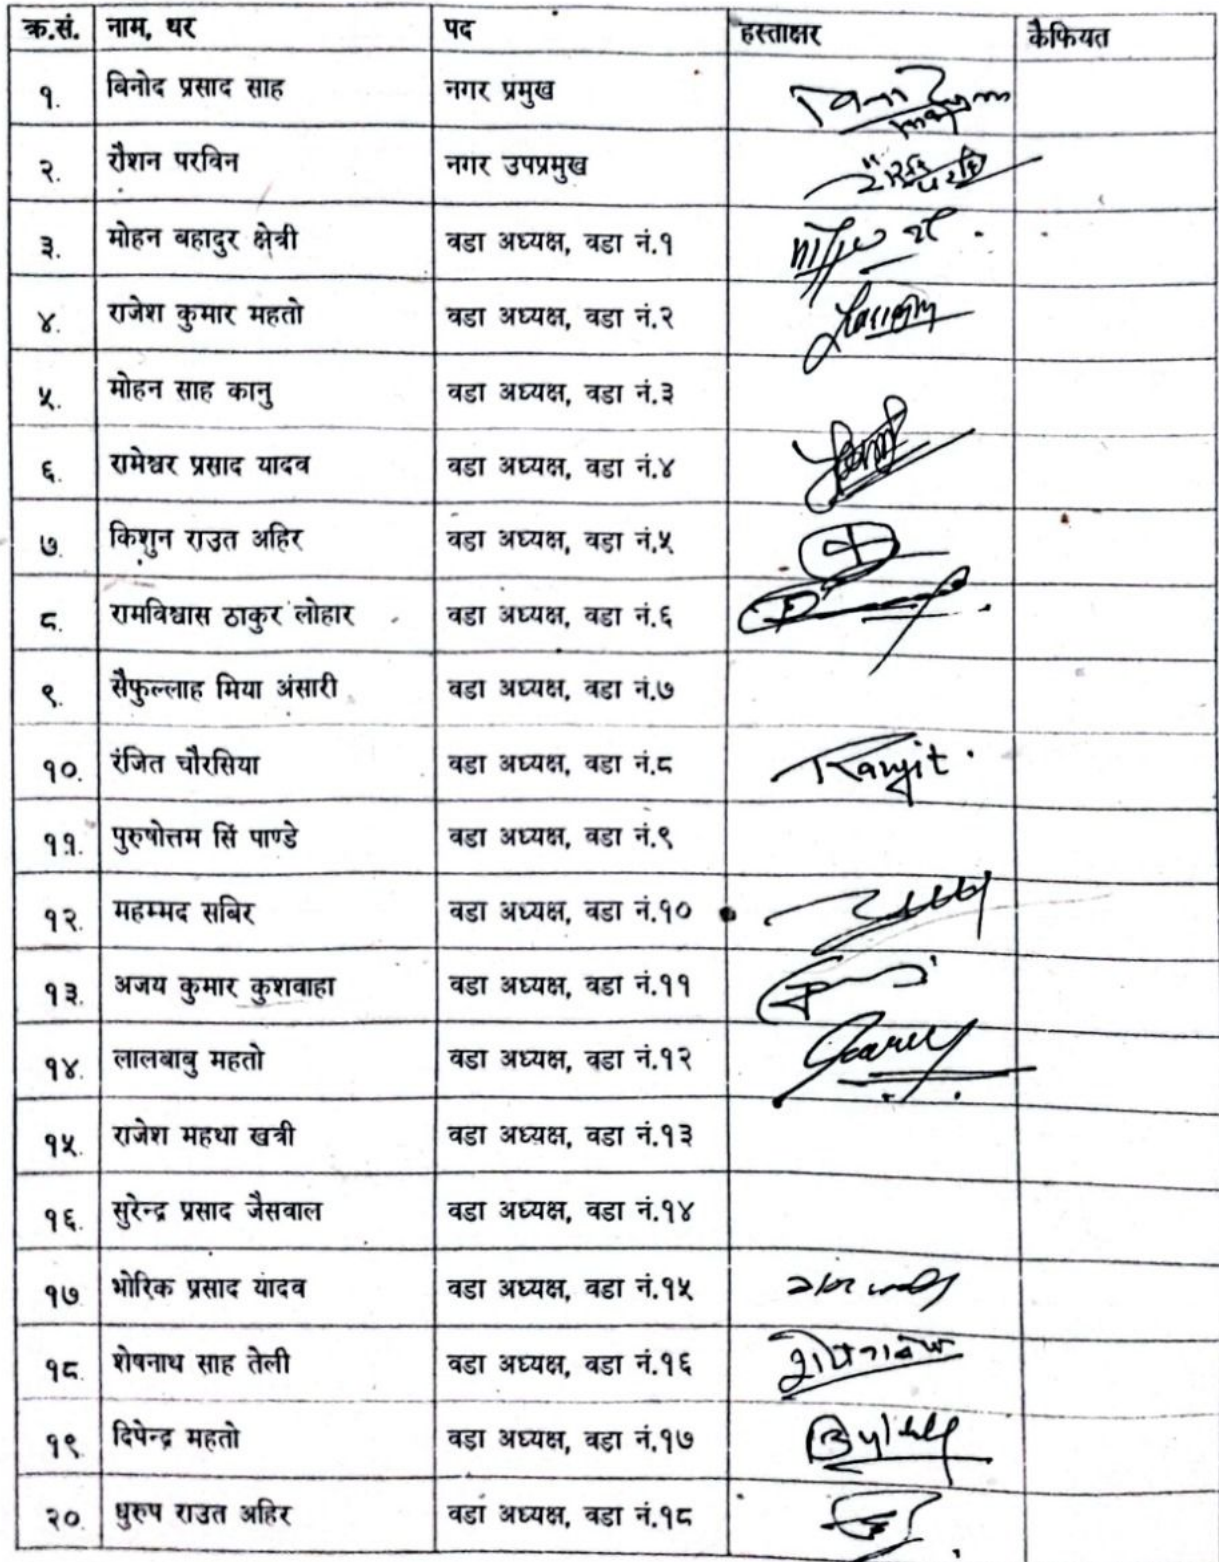 क्र.सं. नाम, थर पद हस्ताक्षर कैफियत
१. बिनोद प्रसाद साह नगर प्रमुख
२. रौशन परविन नगर उपप्रमुख
३. मोहन बहादुर क्षेत्री वडा अध्यक्ष, वडा नं.१
४. राजेश कुमार महतो वडा अध्यक्ष, वडा नं.२
५. मोहन साह कानु वडा अध्यक्ष, वडा नं.३
६. रामेश्वर प्रसाद यादव वडा अध्यक्ष, वडा नं.४
७. किशुन राउत अहिर वडा अध्यक्ष, वडा नं.५
८. रामविश्वास ठाकुर लोहार वडा अध्यक्ष, वडा नं.६
९. सैफुल्लाह मिया अंसारी वडा अध्यक्ष, वडा नं.७
१०. रंजित चौरसिया वडा अध्यक्ष, वडा नं.८ Ranjit
११. पुरुषोत्तम सिं पाण्डे वडा अध्यक्ष, वडा नं.९
१२. महम्मद सबिर वडा अध्यक्ष, वडा नं.१०
१३. अजय कुमार कुशवाहा वडा अध्यक्ष, वडा नं.११
१४. लालबाबु महतो वडा अध्यक्ष, वडा नं.१२
१५. राजेश महथा खत्री वडा अध्यक्ष, वडा नं.१३
१६. सुरेन्द्र प्रसाद जैसवाल वडा अध्यक्ष, वडा नं.१४
१७. भोरिक प्रसाद यादव वडा अध्यक्ष, वडा नं.१५
१८. शेषनाथ साह तेली वडा अध्यक्ष, वडा नं.१६
१९. दिपेन्द्र महतो वडा अध्यक्ष, वडा नं.१७
२०. धुरुप राउत अहिर वडा अध्यक्ष, वडा नं.१८